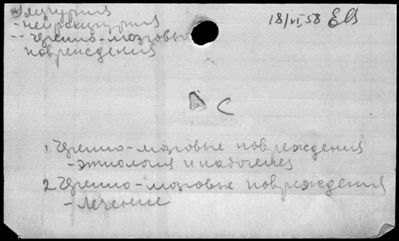 - нейрохирургия 18/VI 58
- черепно-мозговые
повреждения
С
1. Черепно-мозговые повреждения
- этиология и патогенез
2. Черепно-мозговые повреждения
- лечение